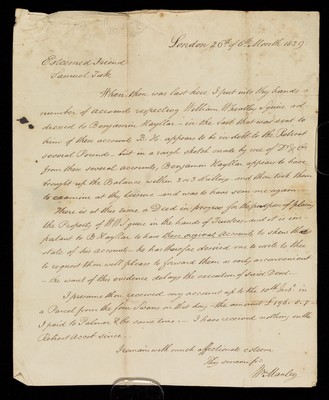 London 26th of 6th Month 1829
Esteemed Friend
Samuel Tuke
When thou was last here I put into thy hands a
number of accounts respecting William Wheatley Squire ad
dressed to Benjamin Haydon — in the last that was sent to
him of these accounts B. H. appears to be in debt to the Retreat
several Pounds — but in a rough sketch made by one of
from these several accounts, Benjamin appears to have
brought up the Balance within 2 or 3 shillings and thou took them
to examine at thy leisure — and was to have seen me again —
There is at this time a Deed in progress for the purpose of placing
the Property of WW Squire in the hands of Trustees — and it is im
portant to B to have these several accounts to show the
state of his account — he has therefore desired me to write to thee
to request thou will please to forward them as early as convenient
— the want of this evidence delays the execution of said Deed —
I presume thou received my account up to the 10th Inst. in
a Parcel from the four Swans on that day — the amount £
I paid to Palmer & Co same time — I have received nothing on the
Retreat account since —
I remain with much affectionate esteem
Thy sincere fd.
Wm Manley